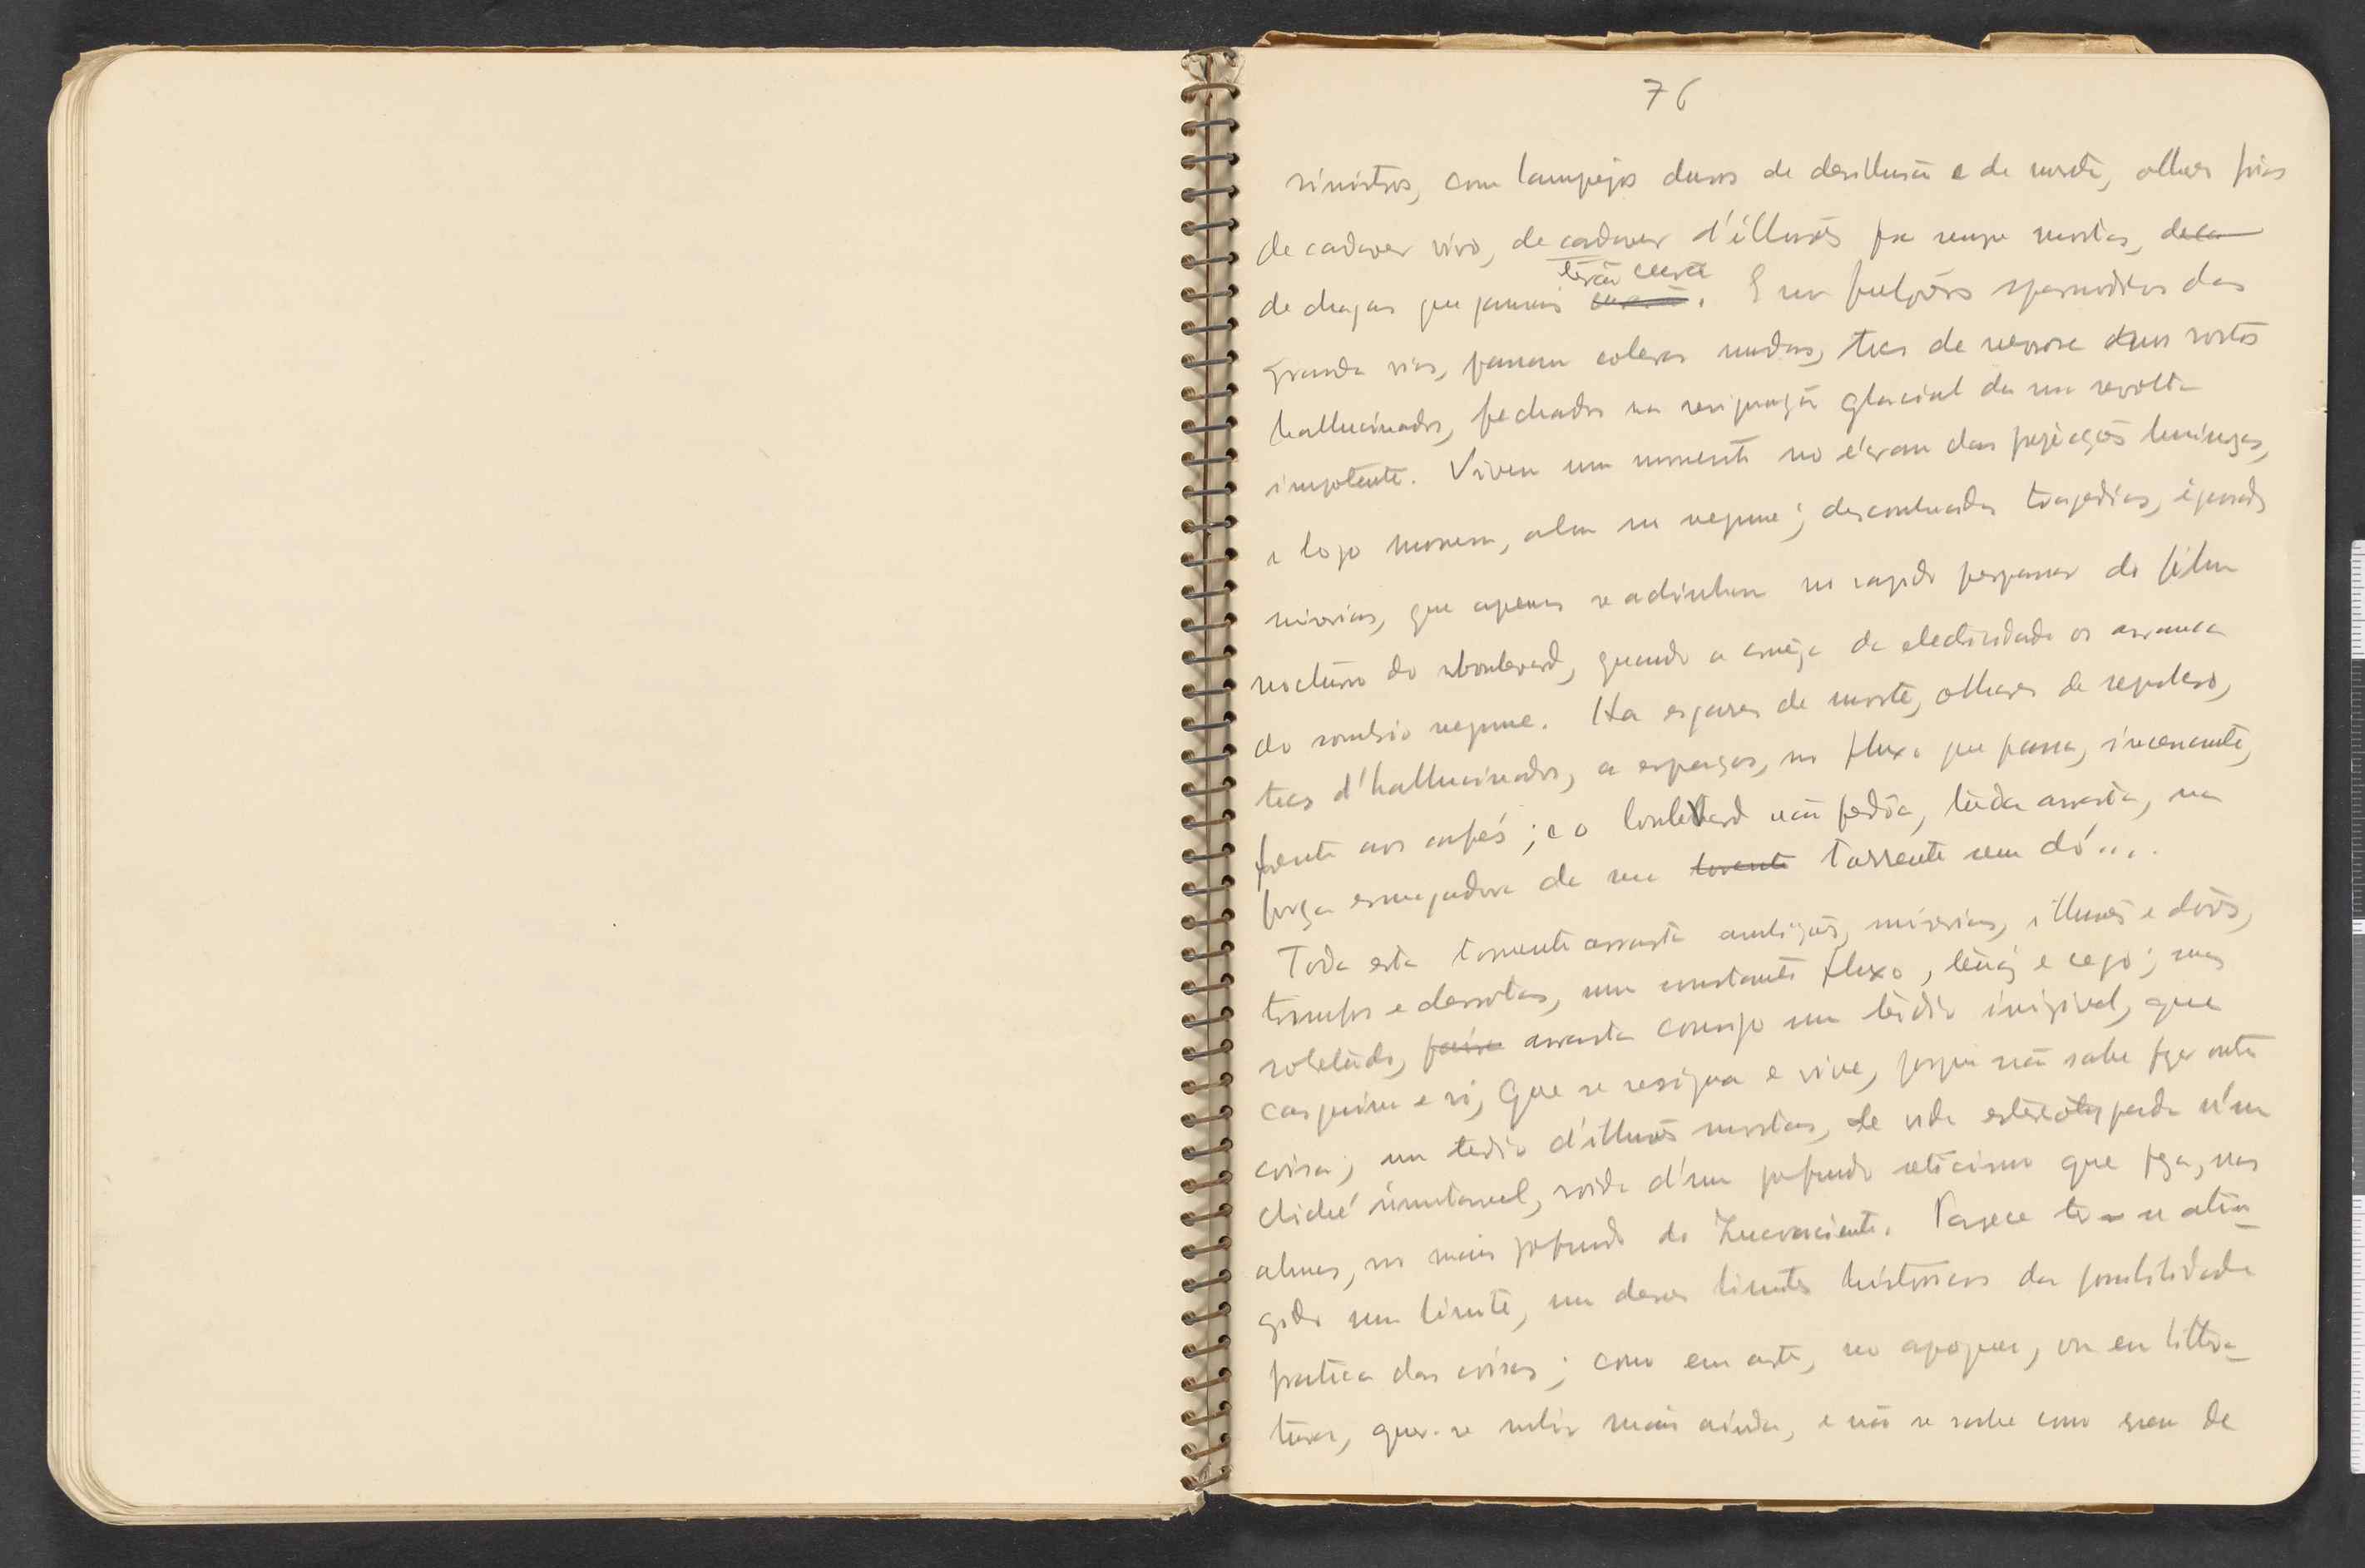 76
sinistros, com lampejos duros de desillusão e de morte, olhos frios
de cadaver vivo, de cadaver d'illusões pra sempre mortas, de ca
de chagas que jamais terão cura. E nos fulgôres spasmodicos das
grandes vias, passam coleras mudas, tics de nevrose duns rostos
hallucinados, fechados na resignação glacial de uma revolta
impotente. Vivem um momento no écran das projecções luminosas,
e logo morrem, alem na negrume; desconhecidas tragedias, ignoradas
miserias, que apenas se adivinham no rapido perpassar do film
nocturno do boulevard, quando a caricia da electricidade os arranca
do sombrio negrume. Ha esgares de morte, olhares de sepulcro,
tics d'hallucinados, a espaços, no fluxo que passa, incessante,
frente aos cafés; e o boulevard não perdôa, tudo arrasta, na
força esmagadora de uma torrente torrente sem dó....
Toda esta torrente arrasta ambições, miserias, illusões e dôres,
triumfos e derrotas, num constante fluxo, tenaz e cego; mas
sobretudo, arrasta comsigo um tédio invisivel, que
casquina e ri, que se resigna e vive, porque não sabe fazer outra
coisa; um tedio d'illusões mortas, de vida estereotypada n'um
cliché immutavel, roida d'um profundo scticismo que jaz, nas
almas, no mais profundo do Inconsciente. Parece ter-se atin-
gido um limite, um desses limites historicos da possibilidade
pratica das coisas; como em arte, no apogeu, ou em littera-
tura, quer-se subir mais ainda, e não se sabe como nem de